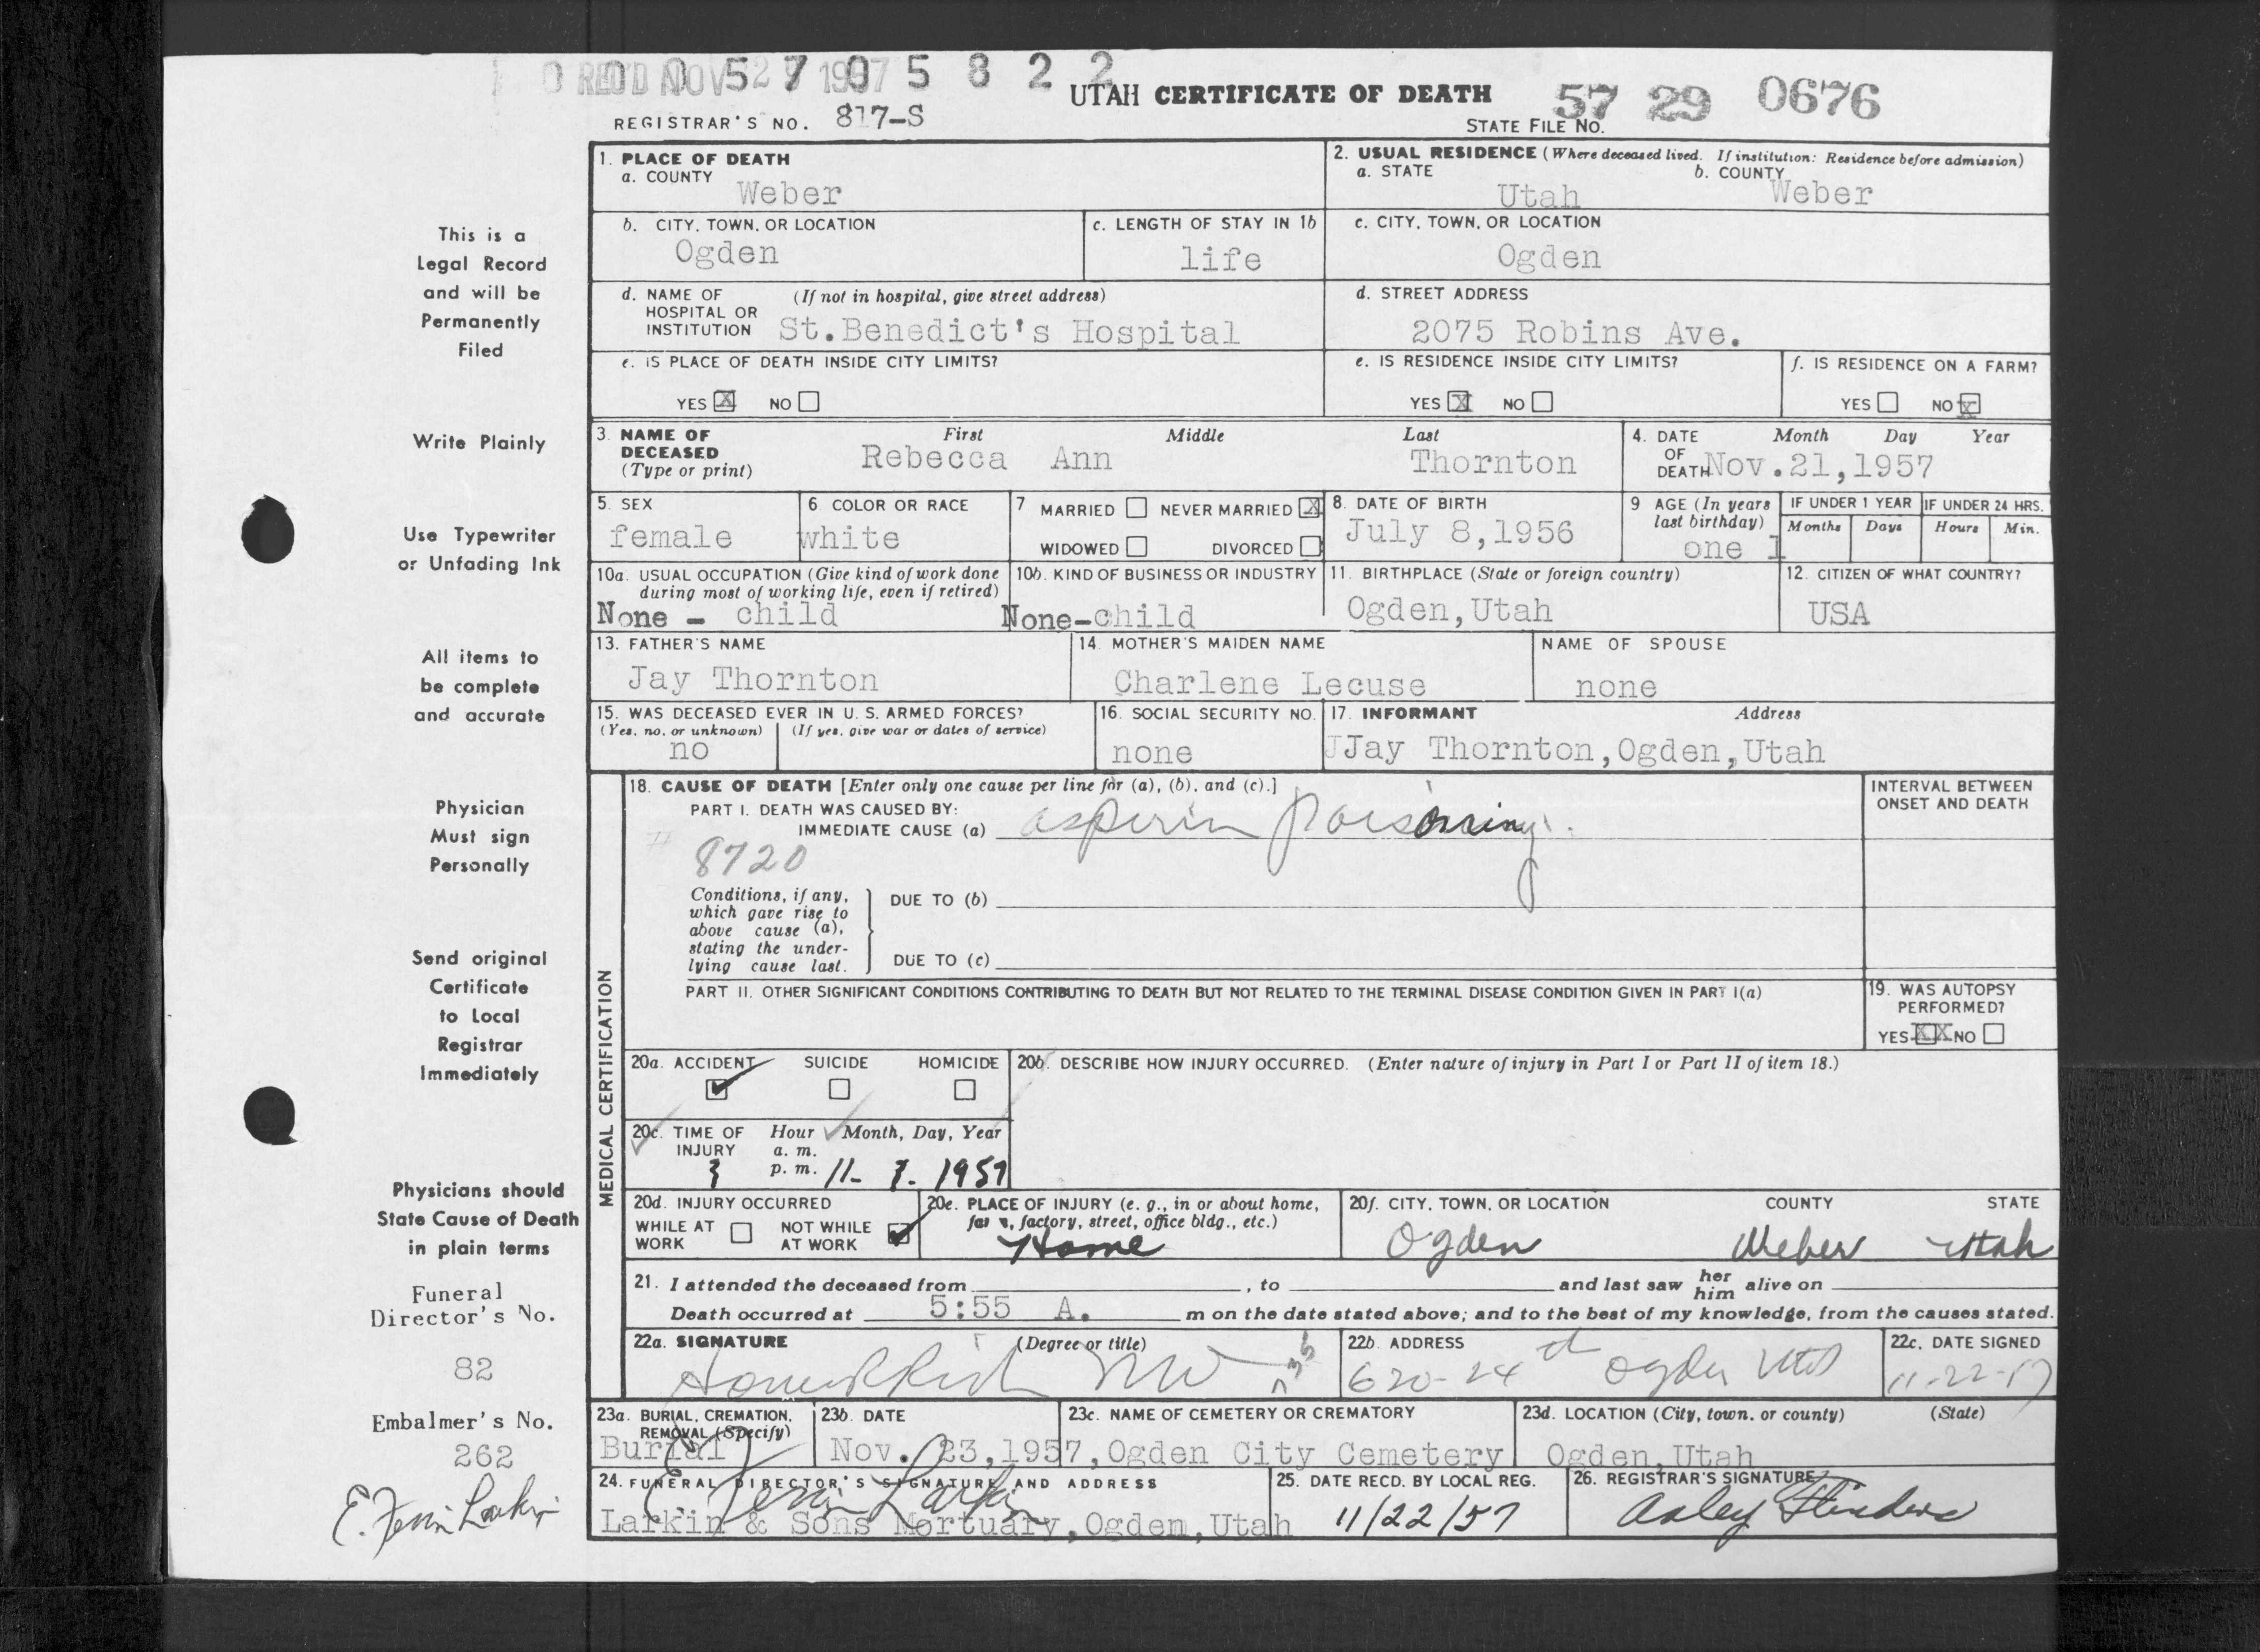 0 0 0 5 7 0 5 8 2 2
REC'D NOV 27 1957
UTAH CERTIFICATE OF DEATH
57 29 0676
REGISTRAR'S NO. 817-S
STATE FILE NO.
1. PLACE OF DEATH
a. COUNTY
Weber
2. USUAL RESIDENCE (Where deceased lived. If institution: Residence before admission)
a. STATE b. COUNTY
Utah Weber
b. CITY, TOWN, OR LOCATION
Ogden
c. LENGTH OF STAY IN 1b
life
c. CITY, TOWN, OR LOCATION
Ogden
d. NAME OF (If not in hospital, give street address)
HOSPITAL OR
INSTITUTION St.Benedict's Hospital
d. STREET ADDRESS
2075 Robins Ave.
e. IS PLACE OF DEATH INSIDE CITY LIMITS?
YES X NO
e. IS RESIDENCE INSIDE CITY LIMITS?
YES X NO
f. IS RESIDENCE ON A FARM?
YES NO X
3. NAME OF First Middle Last
DECEASED
(Type or print) Rebecca Ann Thornton
4. DATE Month Day Year
OF
DEATH Nov.21,1957
5. SEX
female
6 COLOR OR RACE
white
7 MARRIED NEVER MARRIED X
WIDOWED DIVORCED
8. DATE OF BIRTH
July 8,1956
9 AGE (In years
last birthday)
one 1
IF UNDER 1 YEAR IF UNDER 24 HRS.
Months Days Hours Min.
10a. USUAL OCCUPATION (Give kind of work done
during most of working life, even if retired)
None - child
10b. KIND OF BUSINESS OR INDUSTRY
None-child
11. BIRTHPLACE (State or foreign country)
Ogden,Utah
12. CITIZEN OF WHAT COUNTRY?
USA
13. FATHER'S NAME
Jay Thornton
14. MOTHER'S MAIDEN NAME
Charlene Lecuse
NAME OF SPOUSE
none
15. WAS DECEASED EVER IN U. S. ARMED FORCES?
(Yes, no, or unknown) (If yes, give war or dates of service)
no
16. SOCIAL SECURITY NO.
none
17. INFORMANT Address
JJay Thornton,Ogden,Utah
MEDICAL CERTIFICATION
18. CAUSE OF DEATH [Enter only one cause per line for (a), (b), and (c).]
PART I. DEATH WAS CAUSED BY:
IMMEDIATE CAUSE (a) aspirin poisoning
# 8720
Conditions, if any,
which gave rise to
above cause (a),
stating the under-
lying cause last.
DUE TO (b)
DUE TO (c)
INTERVAL BETWEEN
ONSET AND DEATH
PART II. OTHER SIGNIFICANT CONDITIONS CONTRIBUTING TO DEATH BUT NOT RELATED TO THE TERMINAL DISEASE CONDITION GIVEN IN PART I(a)
19. WAS AUTOPSY
PERFORMED?
YES XX NO
20a. ACCIDENT SUICIDE HOMICIDE
20b. DESCRIBE HOW INJURY OCCURRED. (Enter nature of injury in Part I or Part II of item 18.)
20c. TIME OF Hour Month, Day, Year
INJURY a. m.
? p. m. 11- ?- 1957
20d. INJURY OCCURRED
WHILE AT NOT WHILE
WORK AT WORK
20e. PLACE OF INJURY (e. g., in or about home,
farm, factory, street, office bldg., etc.)
Home
20f. CITY, TOWN, OR LOCATION COUNTY STATE
Ogden Weber Utah
21. I attended the deceased from , to and last saw her him alive on
Death occurred at 5:55 A. m on the date stated above; and to the best of my knowledge, from the causes stated.
22a. SIGNATURE (Degree or title)
22b. ADDRESS
620-24th Ogden Utah
22c. DATE SIGNED
11-22-57
23a. BURIAL, CREMATION,
REMOVAL (Specify)
Burial
23b. DATE
Nov. 23,1957,
23c. NAME OF CEMETERY OR CREMATORY
Ogden City Cemetery
23d. LOCATION (City, town, or county) (State)
Ogden,Utah
24. FUNERAL DIRECTOR'S SIGNATURE AND ADDRESS
Larkin & Sons Mortuary,Ogden,Utah
25. DATE RECD. BY LOCAL REG.
11/22/57
26. REGISTRAR'S SIGNATURE
This is a
Legal Record
and will be
Permanently
Filed
Write Plainly
Use Typewriter
or Unfading Ink
All items to
be complete
and accurate
Physician
Must sign
Personally
Send original
Certificate
to Local
Registrar
Immediately
Physicians should
State Cause of Death
in plain terms
Funeral
Director's No.
82
Embalmer's No.
262